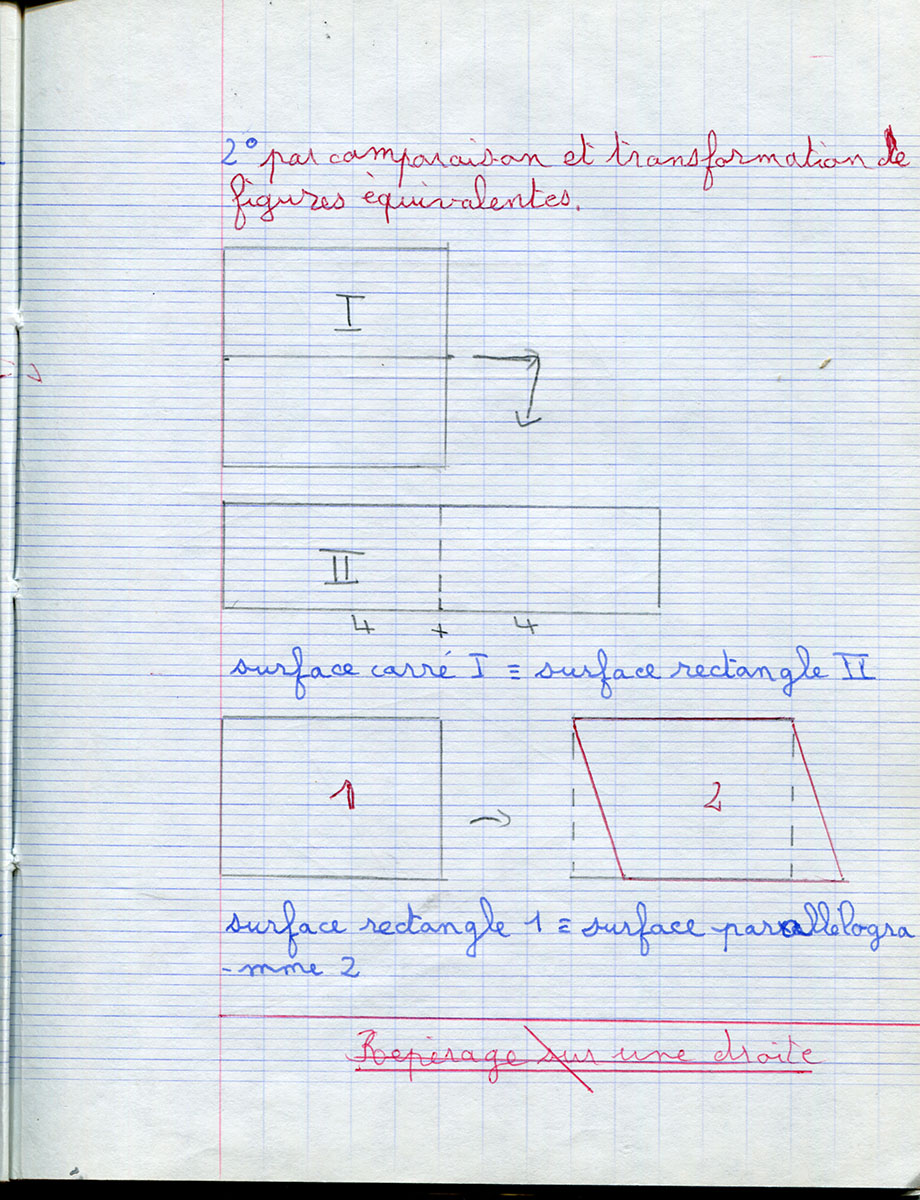 2° par comparaison et transformation de
figures équivalentes.
I
II
4 + 4
surface carré I ≡ surface rectangle II
1
2
surface rectangle 1 ≡ surface parallélogra
-mme 2
Repérage sur une droite